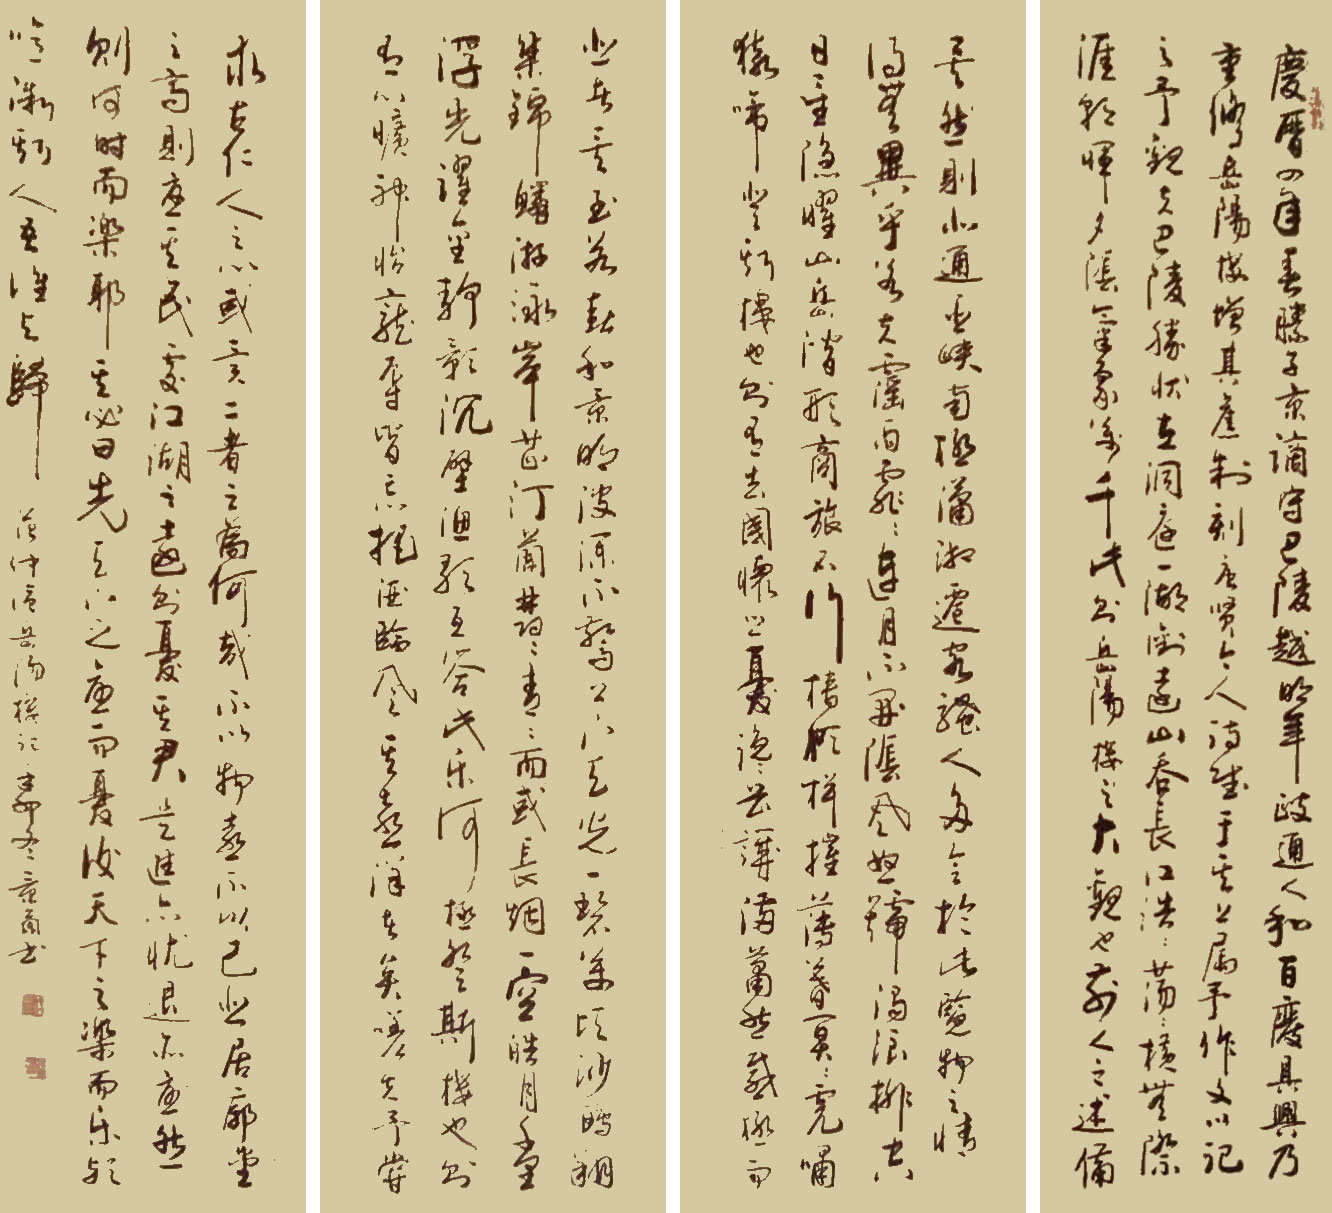 慶曆四年春滕子京謫守巴陵越明年政通人和百廢具興乃
重修岳陽樓增其舊制刻唐贤今人詩賦于其上属予作文以記
之予觀夫巴陵勝状在洞庭一湖銜遠山吞長江浩浩荡荡横無際
涯朝暉夕陰氣象萬千此則岳陽樓之大觀也前人之述備
矣然則北通巫峽南極瀟湘遷客騷人多會於此覽物之情
得無異乎若夫霪雨霏霏連月不開陰風怒號濁浪排空
日星隐曜山岳潛形商旅不行檣傾楫摧薄暮冥冥虎嘯
猿啼登斯樓也則有去國懷鄉憂讒畏譏滿蕭然感極而
悲者矣至若春和景明波瀾不驚上下天光一碧萬頃沙鷗翔
集錦鱗游泳岸芷汀蘭郁郁青青而或長烟一空皓月千里
浮光躍金靜影沉壁漁歌互答此乐何極登斯樓也則
有心曠神怡寵辱皆忘把酒臨風其喜洋洋者矣嗟夫予嘗
求古仁人之心或異二者之為何哉不以物喜不以己悲居廟堂
之高則憂其民處江湖之遠則憂其君是進亦忧退亦憂然
則何時而樂耶其必曰先天下之憂而憂後天下之樂而乐歟
噫微斯人吾誰与歸
范仲淹岳陽樓记